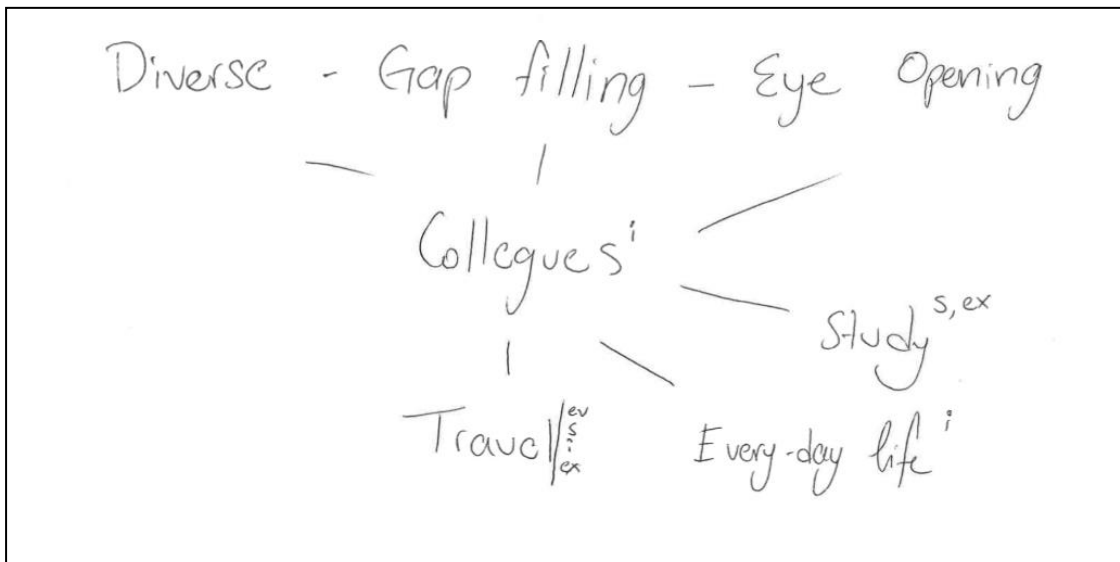 Diverse - Gap filling - Eye Opening
Collegues i
Study s, ex
Travel/ ev s i ex
Every-day life i